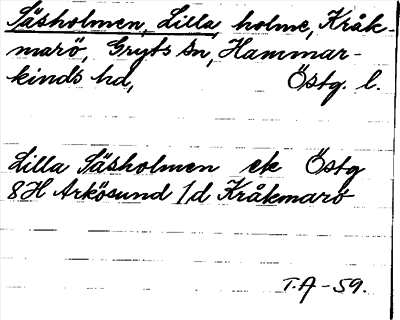 Säsholmen, Lilla, holme, Kråk-
marö, Gryts sn, Hammar-
kinds hd, Östg. l.
Lilla Säsholmen ek Östg
8H Arkösund 1d Kråkmarö
T.A-59.